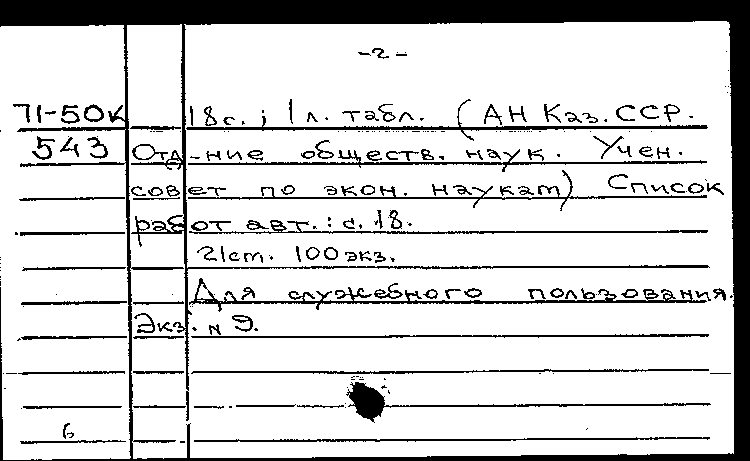 -2-
71-50к 18с.; 1л. табл. (АН Каз. ССР.
543 Отд-ние обществ. наук. Учен.
совет по экон. наукам) Список
работ авт.: с. 18.
21см. 100 экз.
Для служебного пользования.
Экз. N 9.
6